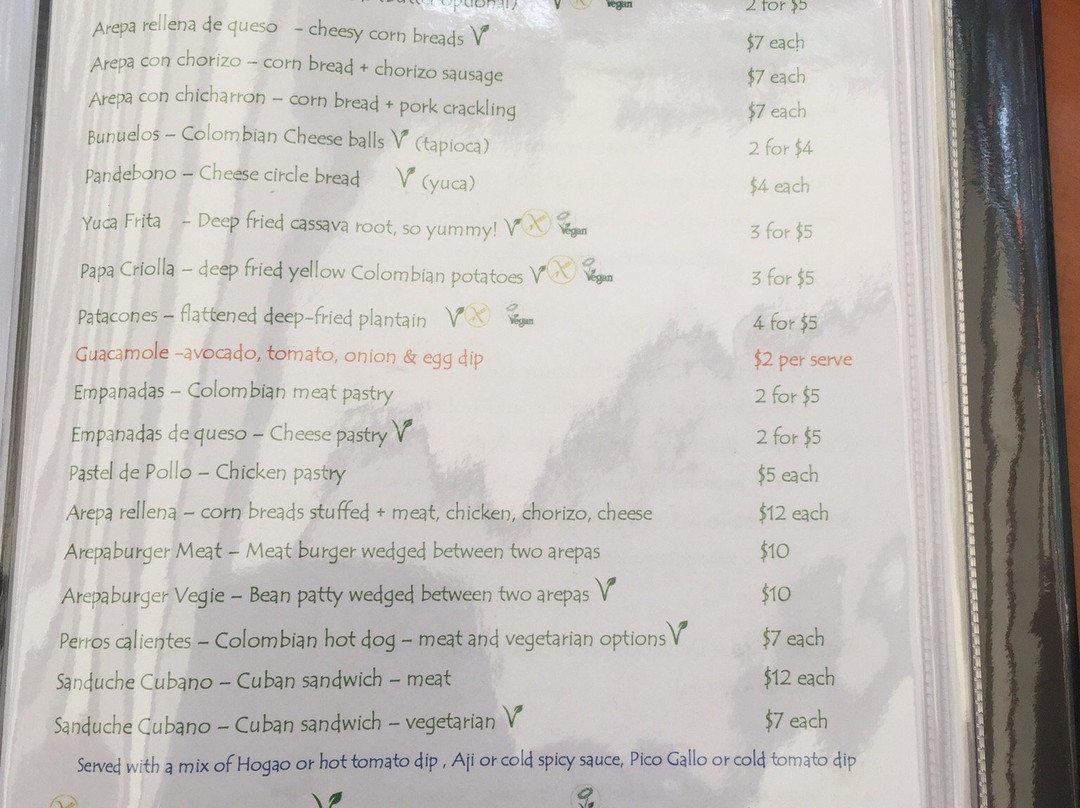 Vegan 2 for $5
Arepa rellena de queso - cheesy corn breads V $7 each
Arepa con chorizo – corn bread + chorizo sausage $7 each
Arepa con chicharron – corn bread + pork crackling $7 each
Bunuelos – Colombian Cheese balls V (tapioca) 2 for $4
Pandebono – Cheese circle bread V (yuca) $4 each
Yuca Frita - Deep fried cassava root, so yummy! V X Vegan 3 for $5
Papa Criolla – deep fried yellow Colombian potatoes V X Vegan 3 for $5
Patacones – flattened deep-fried plantain V X Vegan 4 for $5
Guacamole -avocado, tomato, onion & egg dip $2 per serve
Empanadas – Colombian meat pastry 2 for $5
Empanadas de queso – Cheese pastry V 2 for $5
Pastel de Pollo – Chicken pastry $5 each
Arepa rellena – corn breads stuffed + meat, chicken, chorizo, cheese $12 each
Arepaburger Meat – Meat burger wedged between two arepas $10
Arepaburger Vegie – Bean patty wedged between two arepas V $10
Perros calientes – Colombian hot dog – meat and vegetarian options V $7 each
Sanduche Cubano – Cuban sandwich – meat $12 each
Sanduche Cubano – Cuban sandwich – vegetarian V $7 each
Served with a mix of Hogao or hot tomato dip , Aji or cold spicy sauce, Pico Gallo or cold tomato dip